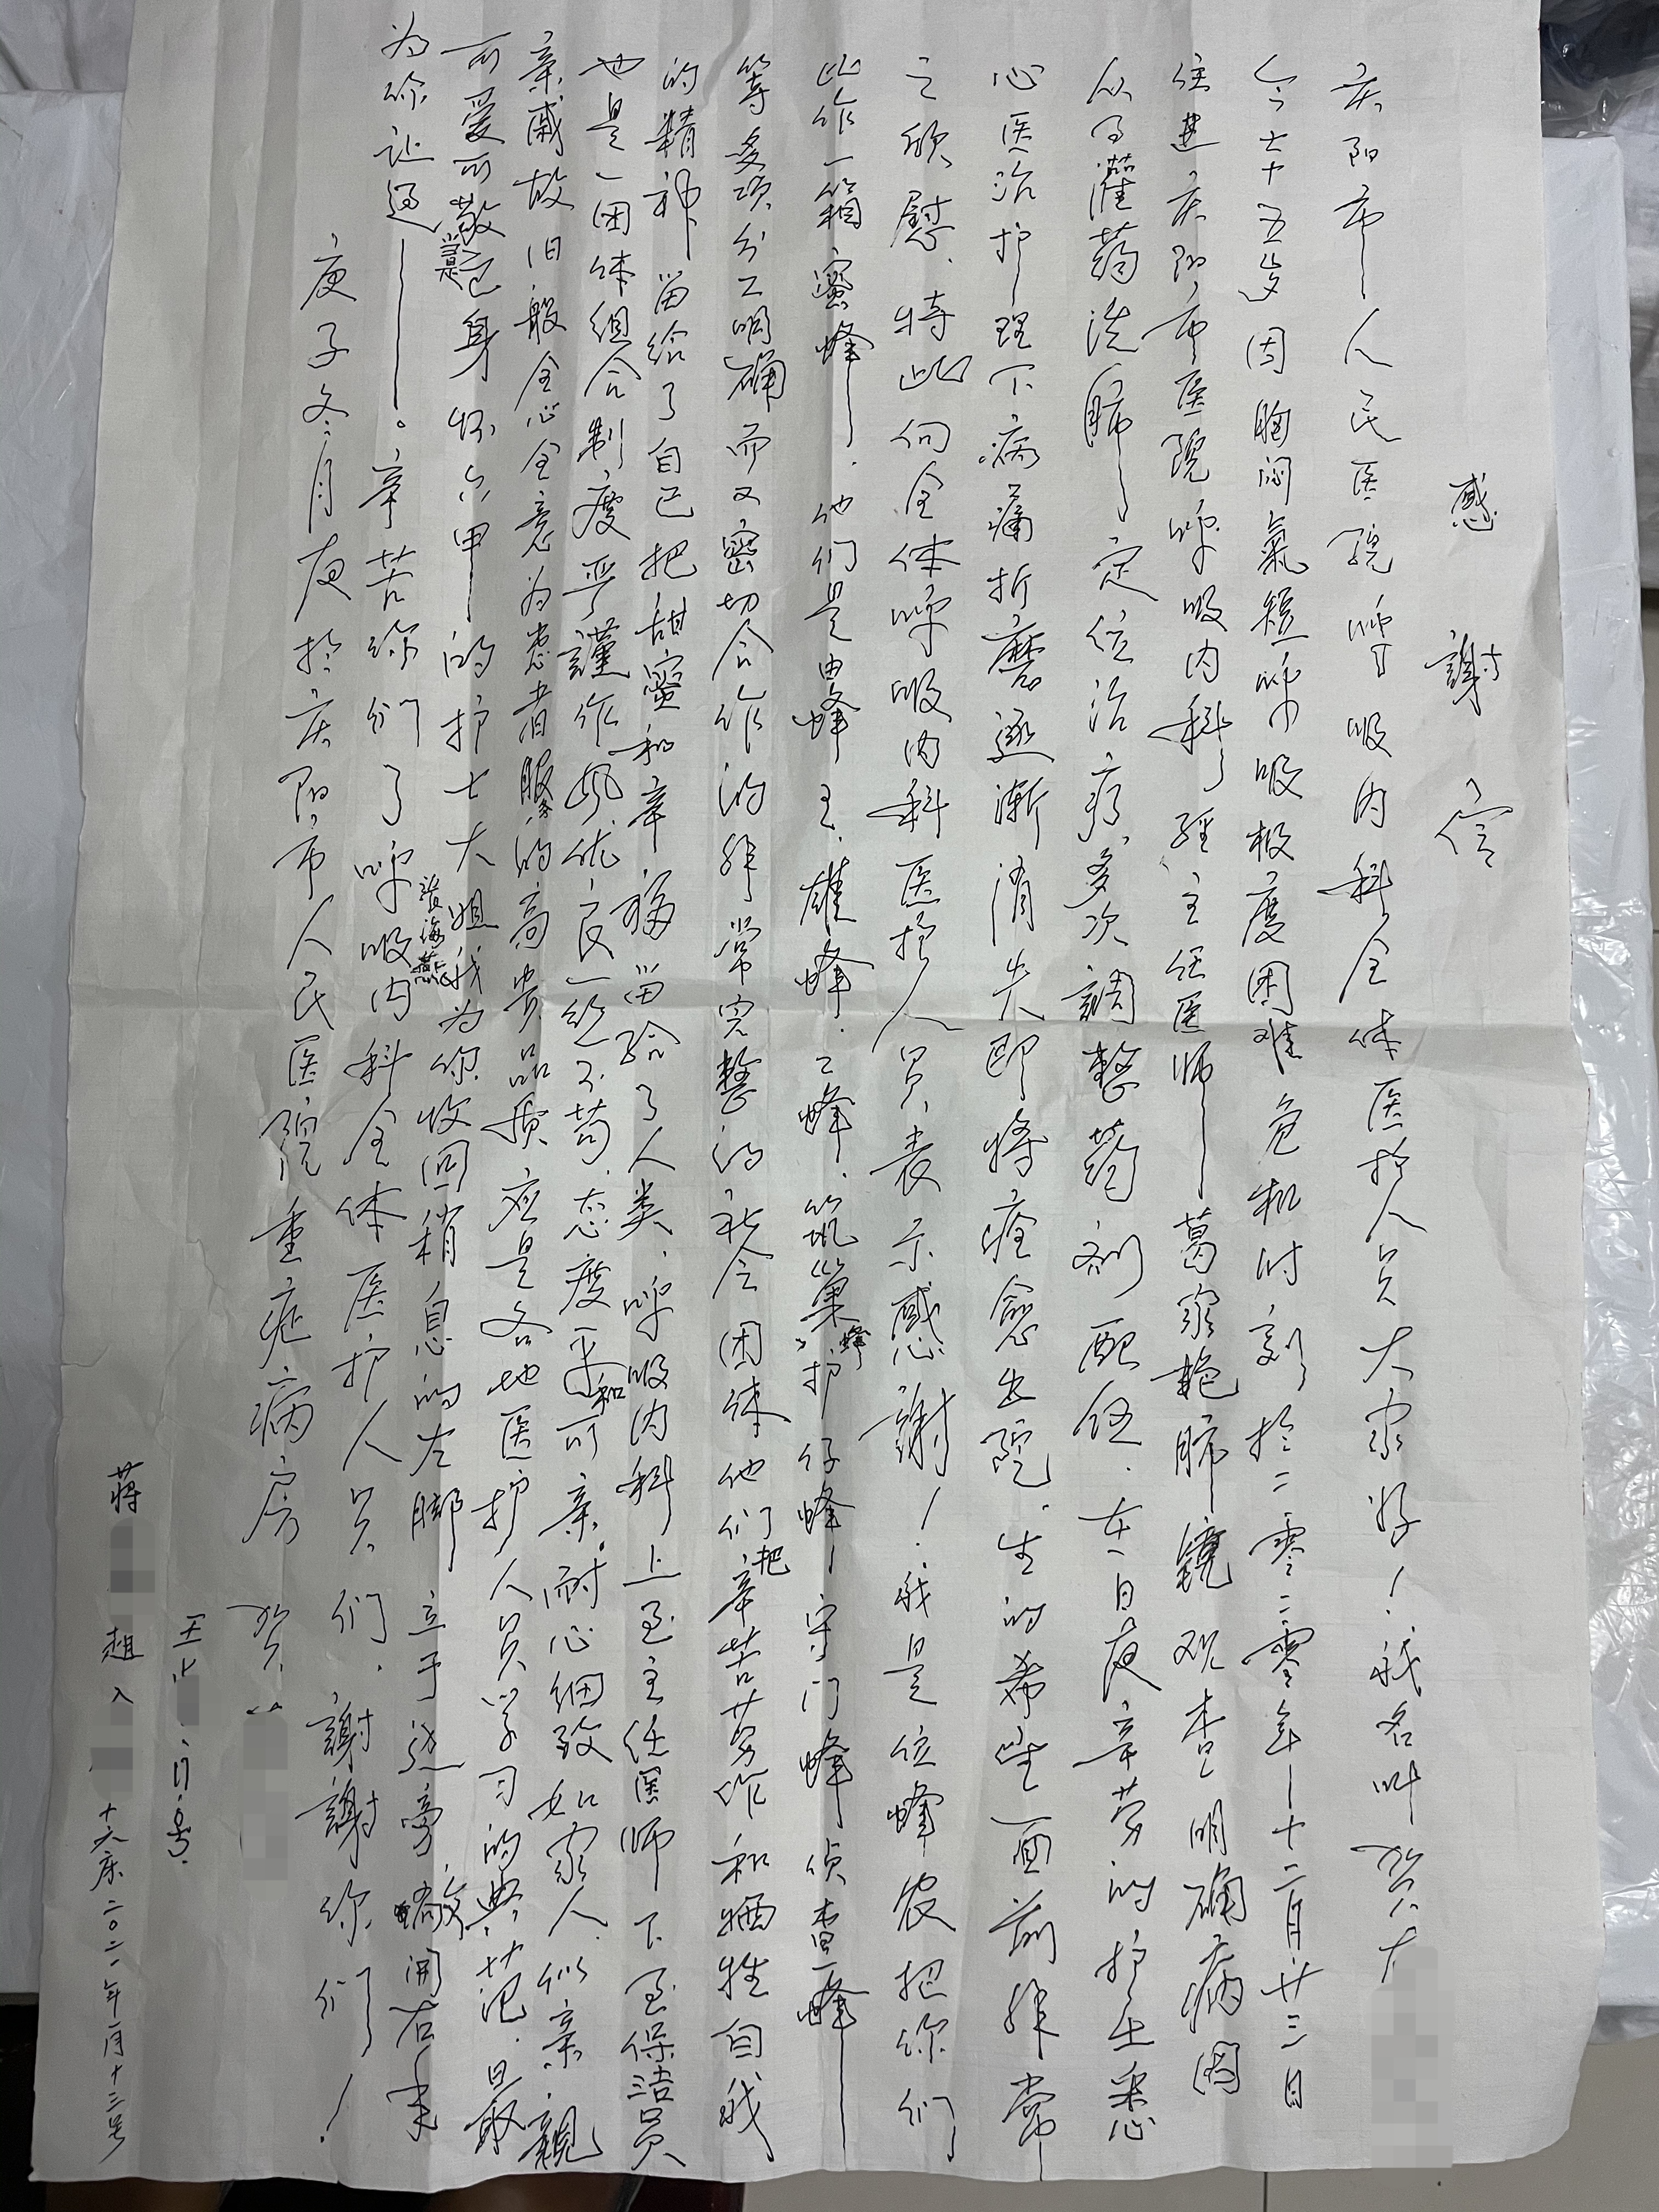 感謝信
庆阳市人民医院呼吸内科全体医护人员大家好！我名叫贺
今七十五岁因胸闷氣短呼吸极度困难危机时刻于二零二零年十二月廿三日
住进庆阳市医院呼吸内科经主任医师——葛家艳肺镜观查明确病因
从而灌药洗肺定位治疗，多次調整药剂配伍．在日夜辛劳的护士悉
心医治护理下病痛折磨逐渐消失即将痊愈出院．生的希望面前非常
之欣慰．特此向全体呼吸内科医护人员表示感謝！我是位蜂农把你们
比作一箱蜜蜂——．他们是由蜂王．雄蜂．工蜂．筑巢蜂，护仔蜂，守门蜂侦查蜂——
等多项分工明确而又密切合作的非常完整的社会团体他们把辛苦劳作和牺牲自我
的精神留给了自己把甜蜜和幸福留给了人类．呼吸内科上至主任医师下至保洁员
也是一团体组合制度严謹作风优良一丝不苟．态度平和可亲．耐心细致如家人似亲．親
亲戚故旧般全心全意为患者服务的高贵品质应是各地医护人员学习的典范．最
可爱可敬当是已身怀六甲——的护士大姐张海燕我为你收回稍息的左脚立于边旁敞开右手
为你让道——。辛苦你们了呼吸内科全体医护人员们．謝謝你们！
庚子冬月夜於庆阳市人民医院重症病房 贺
王
蔣 趙 十六床二0二一年一月十三号